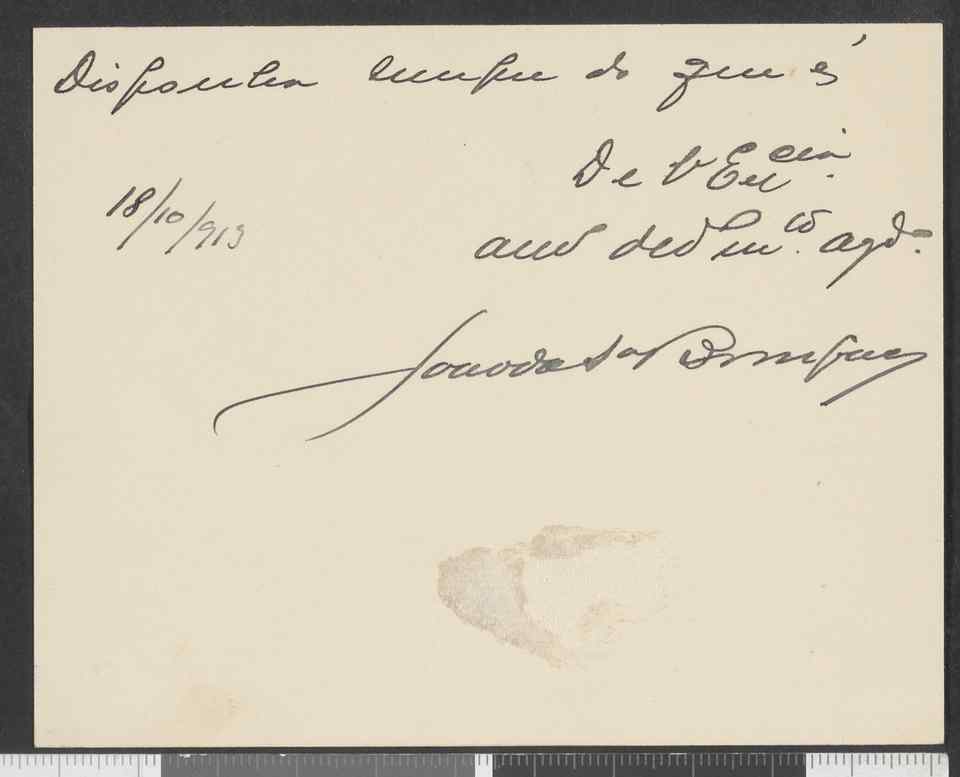 Disponha sempre do quem é
De V Ex cia.
amº dedº m.to agdº
18/10/913